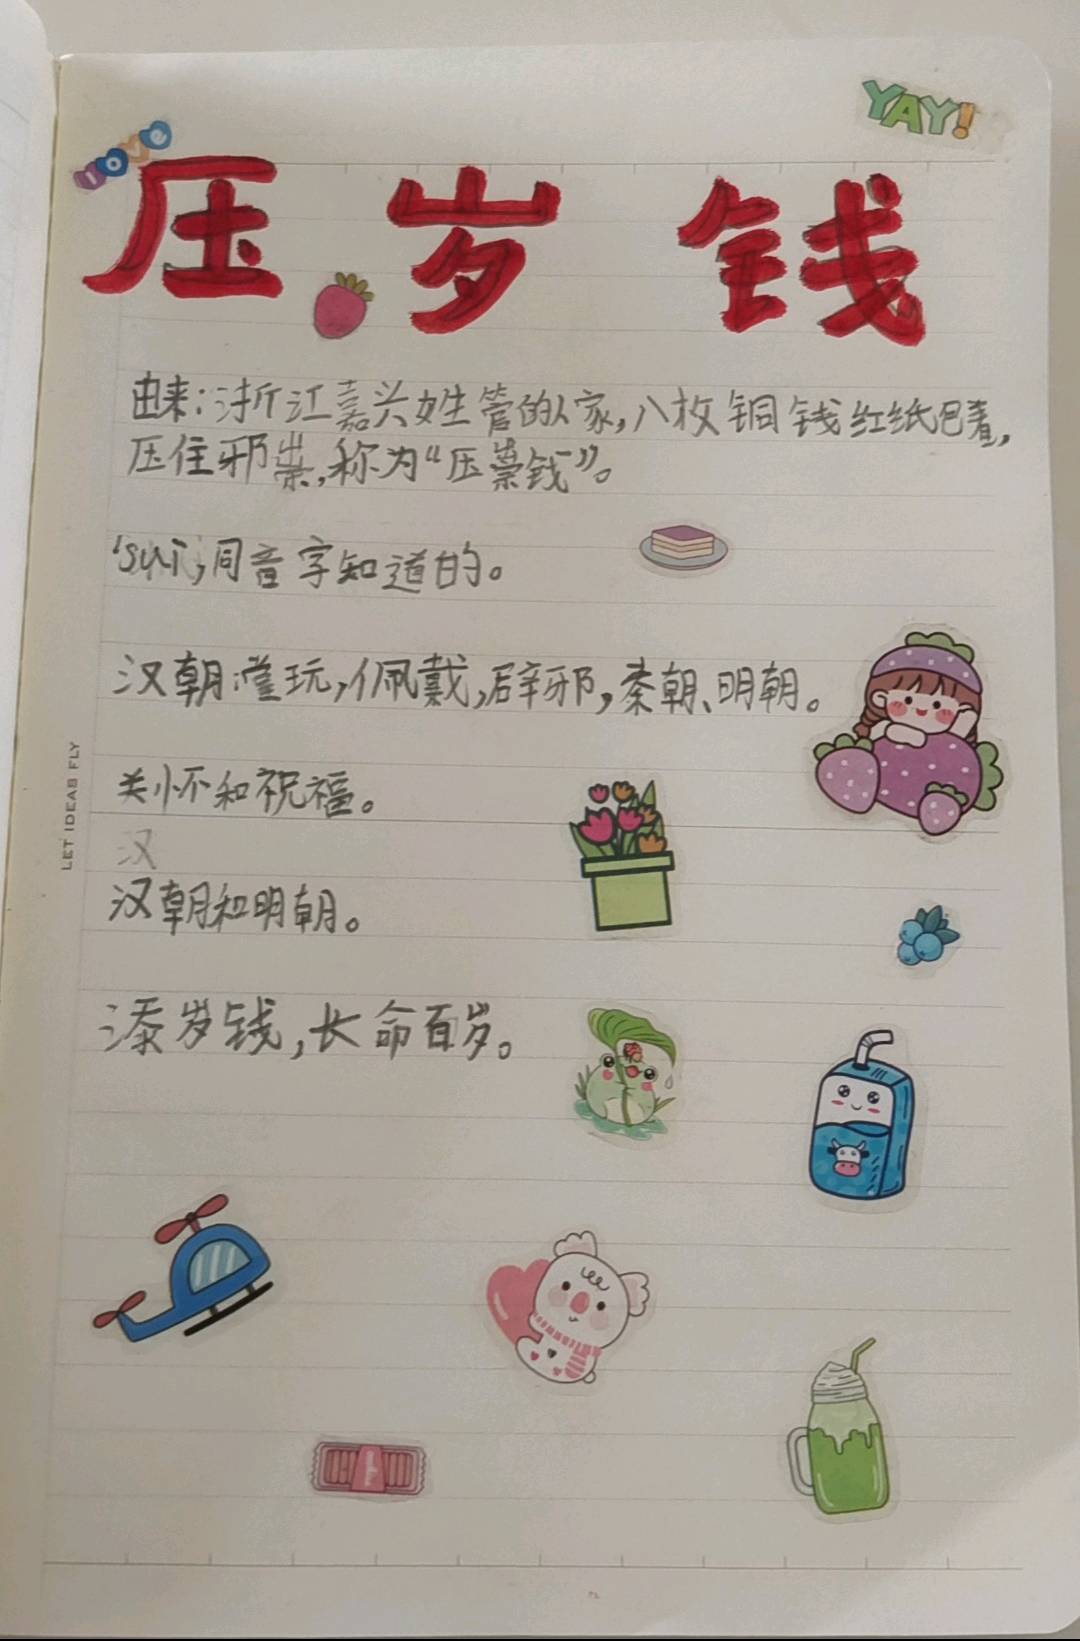 love
YAY!
压岁钱
由来:浙江嘉兴姓管的人家,八枚铜钱红纸包着,
压住邪祟,称为“压祟钱”。
‘sui’,同音字知道的。
汉朝:赏玩,佩戴,辟邪,秦朝、明朝。
关怀和祝福。
汉
汉朝和明朝。
添岁钱,长命百岁。
LET IDEAS FLY